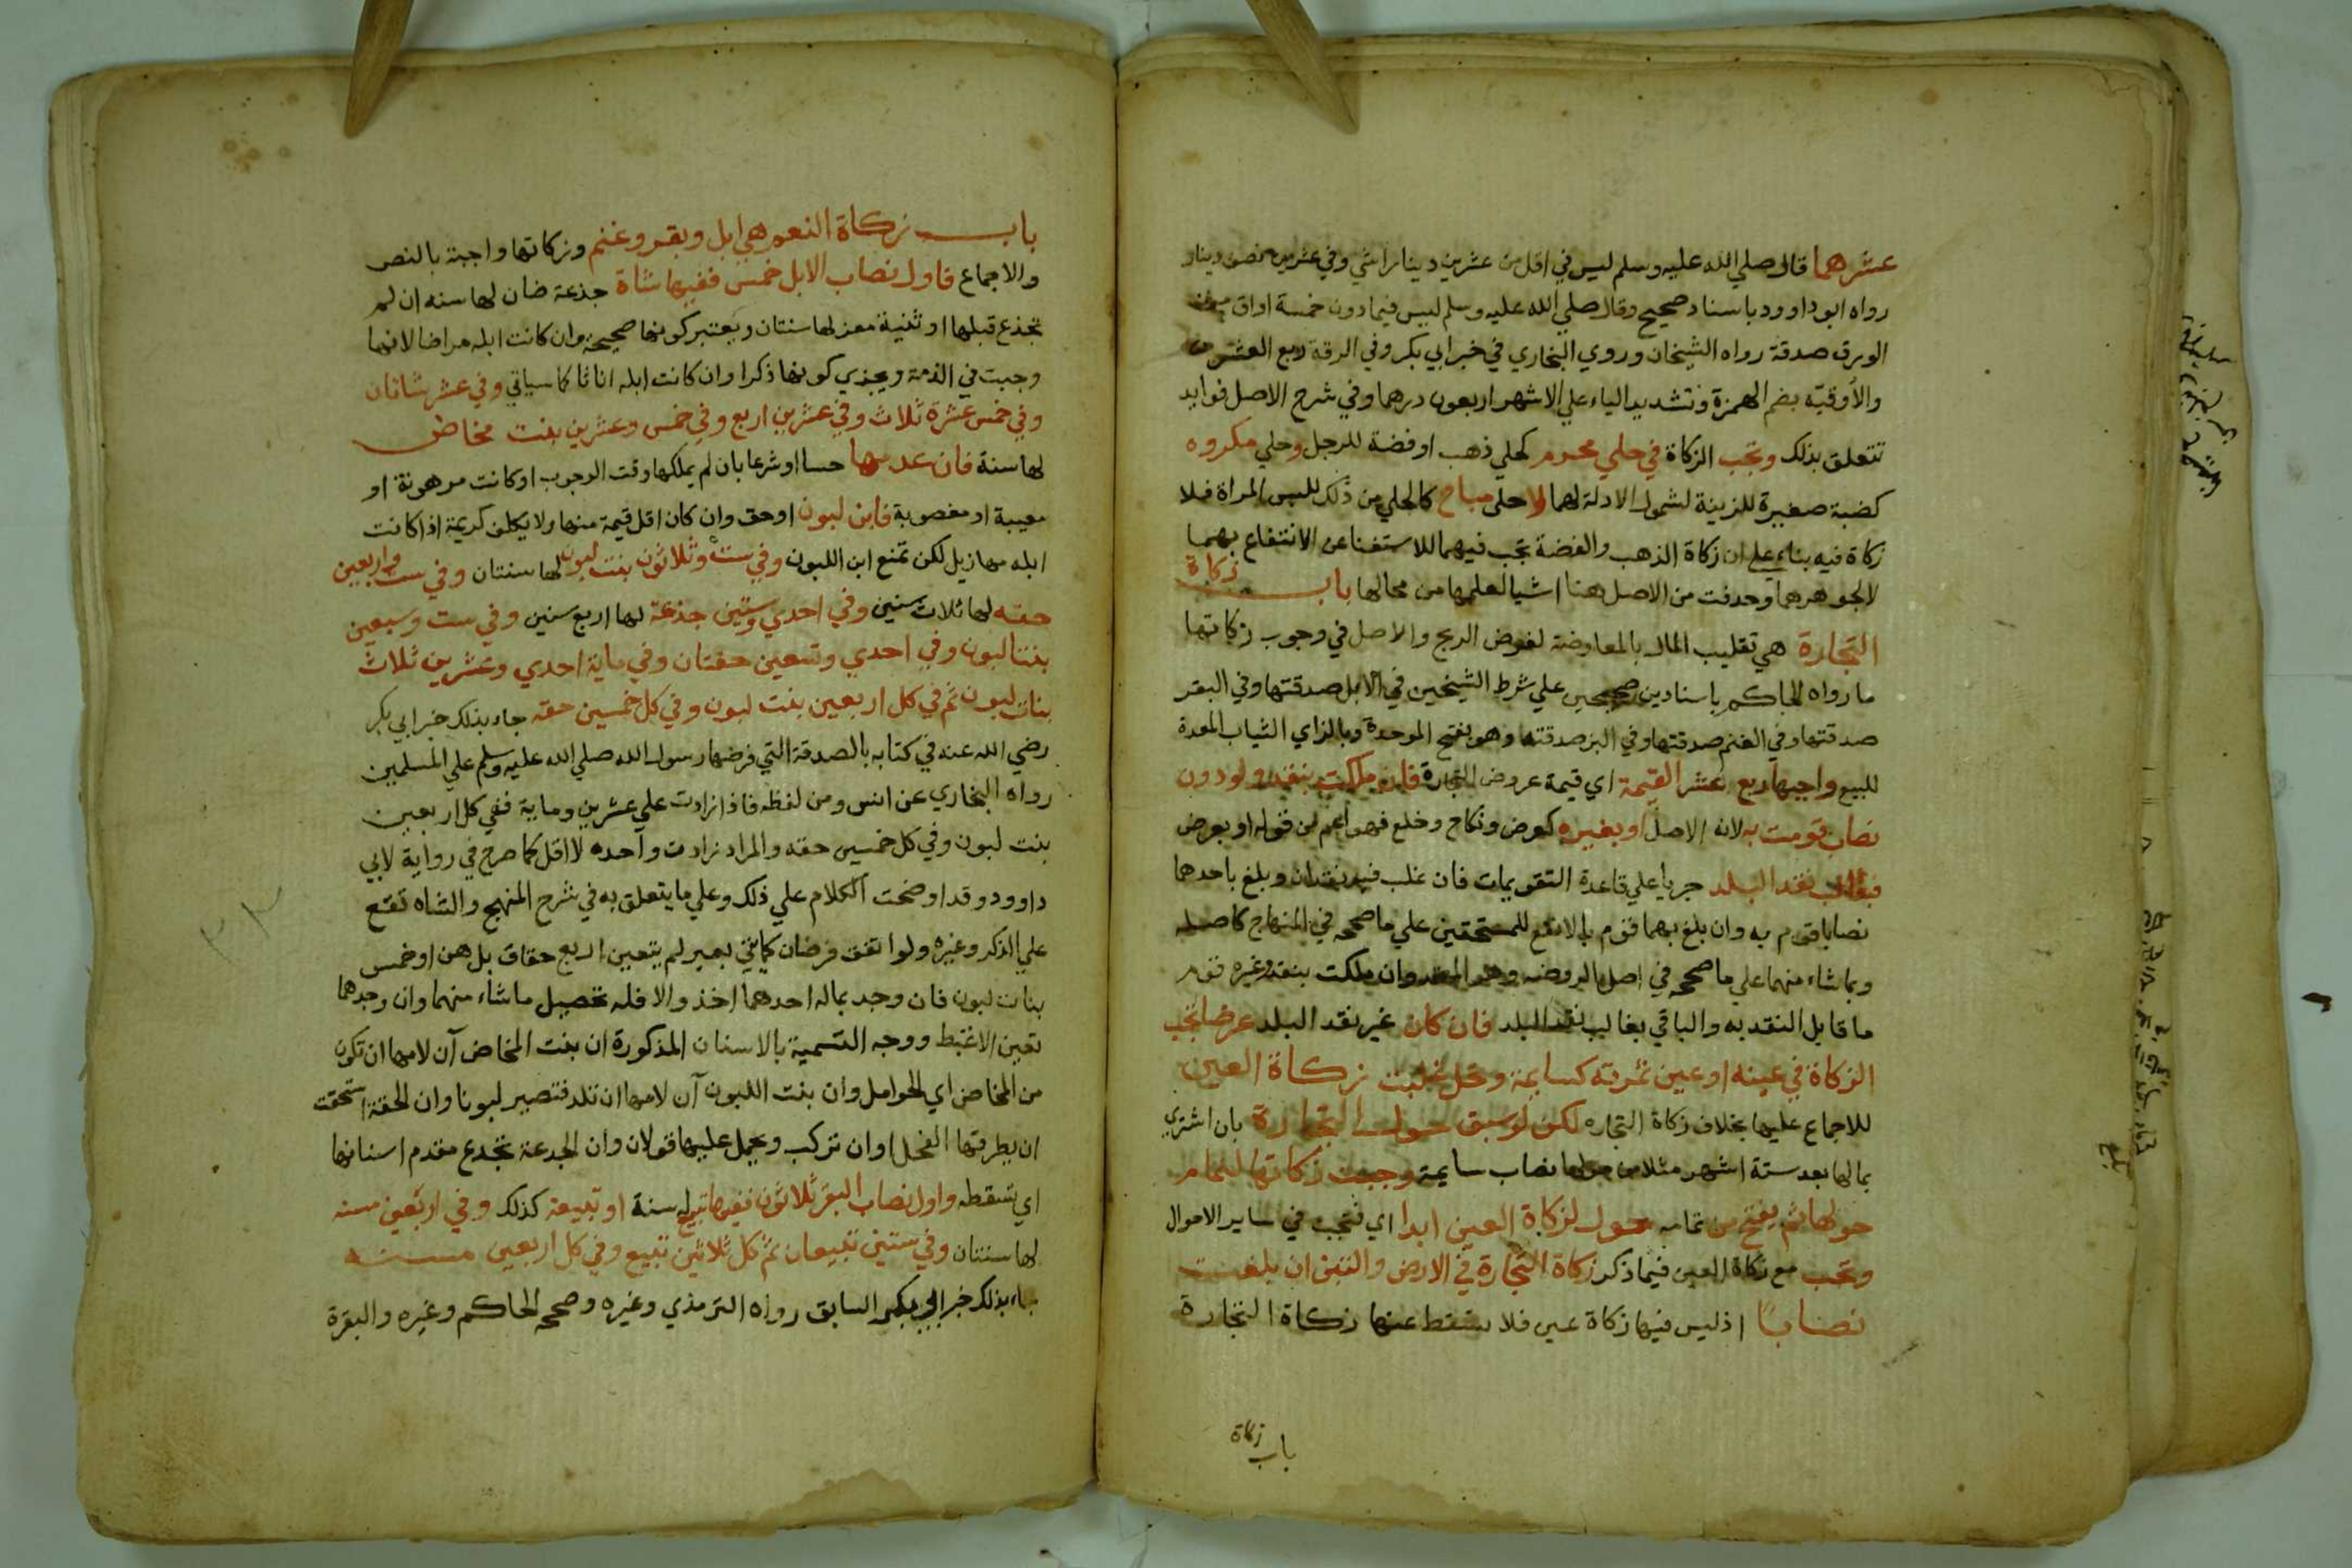 عشرهما قال صلي الله عليه وسلم ليس في اقل من عشرين دينارا شي وفي عشرين نصف دينار
رواه ابوداوود باسناد صحيح وقال صلي الله عليه وسلم ليس فيما دون خمسة اواق من
الورق صدقة رواه الشيخان وروي البخاري في خبر ابي بكر وفي الرقة ربع العشر
والأوقية بضم الهمزة وتشديد الياء علي الاشهر اربعون درهما وفي شرح الاصل فوايد
تتعلق بذلك وتجب الزكاة في حلي محرم كحلي ذهب او فضة للرجل وحلي مكروه
كضبة صغيرة للزينة لشمول الادلة لهما لا حلي مباح كالحلي من ذلك للبس المراة فلا
زكاة فيه بناء علي ان زكاة الذهب والفضة تجب فيهما للاستغنا عن الانتفاع بهما
لا لجوهرهما وحدفت من الاصل هنا اشيا لعلمها من محالها باب زكاة
التجارة هي تقليب المال بالمعاوضة لغرض الربح والاصل في وجوب زكاتها
ما رواه الحاكم باسنادين صحيحين علي شرط الشيخين في الابل صدقتها وفي البقر
صدقتها وفي الغنم صدقتها وفي البز صدقته وهو بفتح الموحدة وبالزاي الثياب المعدة
للبيع واجبها ربع عشر القيمة اي قيمة عروض التجارة فان ملكت بنقد ولو دون
نصاب قومت به لانه الاصل او بغيره كعرض ونكاح وخلع فهو اعم من قوله او بعرض
فبغالب نقد البلد جريا علي قاعدة التقويمات فان غلب فيه نقدان وبلغ باحدهما
نصابا قوم به وان بلغ بهما قوم بالانفع للمستحقين علي ما صححه في المنهاج كاصله
وبما شاء منهما علي ما صححه في اصل الروضه وهو المعتمد وان ملكت بنقد وغيره قوم
ما قابل النقد به والباقي بغالب نقد البلد فان كان غير نقد البلد عرضا تجب
الزكاة في عينه او عين ثمرته كسايمة ونخل غلبت زكاة العين
للاجماع عليها بخلاف زكاة التجاره لكن لو سبق حول التجارة بان اشتري
بمالها بعد ستة اشهر مثلا من حولها نصاب سايمة وجبت زكاتها لتمام
حولها ثم يفتح من تمامه حول لزكاة العين ابدا اي فتجب في ساير الاحوال
وتجب مع زكاة العين فيما ذكر زكاة التجارة في الارض والتبن ان بلغت
نصابا اذ ليس فيها زكاة عين فلا تسقط عنها زكاة التجارة
باب زكاة
باب زكاة النعم هي ابل وبقر وغنم وزكاتها واجبة بالنص
والاجماع فاول نصاب الابل خمس ففيها شاة جذعة ضان لها سنه ان لم
تجذع قبلها او ثنية معز لها سنتان ويعتبر كونها صحيحة وان كانت ابله مراضا لانها
وجبت في الذمة ويجزي كونها ذكرا وان كانت ابله اناثا كما سياتي وفي عشر شاتان
وفي خمس عشرة ثلاث وفي عشرين اربع وفي خمس وعشرين بنت مخاض
لها سنة فان عدمها حسا او شرعا بان لم يملكها وقت الوجوب او كانت مرهونة او
معيبة او مغصوبة فابن لبون او حق وان كان اقل قيمة منها ولا يكلف كريمة اذا كانت
ابله مهازيل لكن تمنع ابن اللبون وفي ست وثلاثون بنت لبون لها سنتان وفي ست واربعين
حقه لها ثلاث سنين وفي احدي وستين جذعة لها اربع سنين وفي ست وسبعين
بنتا لبون وفي احدي وتسعين حقتان وفي ماية احدي وعشرين ثلاث
بنات لبون ثم في كل اربعين بنت لبون وفي كل خمسين حقه جاء بذلك خبر ابي بكر
رضي الله عنه في كتابه بالصدقة التي فرضها رسول الله صلي الله عليه وسلم علي المسلمين
رواه البخاري عن انس ومن لفظه فاذا زادت علي عشرين وماية ففي كل اربعين
بنت لبون وفي كل خمسين حقه والمراد زادت وآحده لا اقل كما صرح في رواية لابي
داوود وقد اوضحت الكلام علي ذلك وعلي ما يتعلق به في شرح المنهج والشاه تقع
علي الذكر وغيره ولو اتفق فرضان كمايتي بعير لم يتعين اربع حقاق بل هن او خمس
بنات لبون فان وجد بماله احدهما اخذ والا فله تحصيل ما شاء منهما وان وجدهما
تعين الاغبط ووجه التسمية بالاسنان المذكورة ان بنت المخاض آن لامها ان تكون
من المخاض اي الحوامل وان بنت اللبون آن لامها ان تلد فتصير لبونا وان الحقة استحقت
ان يطرقها الفحل او ان تركب ويحمل عليها قولان وان الجدعة تجدع مقدم اسنانها
اي تسقطه واول نصاب البقر ثلاثون ففيها تبيع له سنة او تبيعة كذلك وفي اربعين مسنه
لها سنتان وفي ستين تبيعان ثم كل ثلاثين تبيع وفي كل اربعين مسنه
جاء بذلك خبر ابي بكر السابق رواه الترمذي وغيره وصححه الحاكم وغيره والبقرة